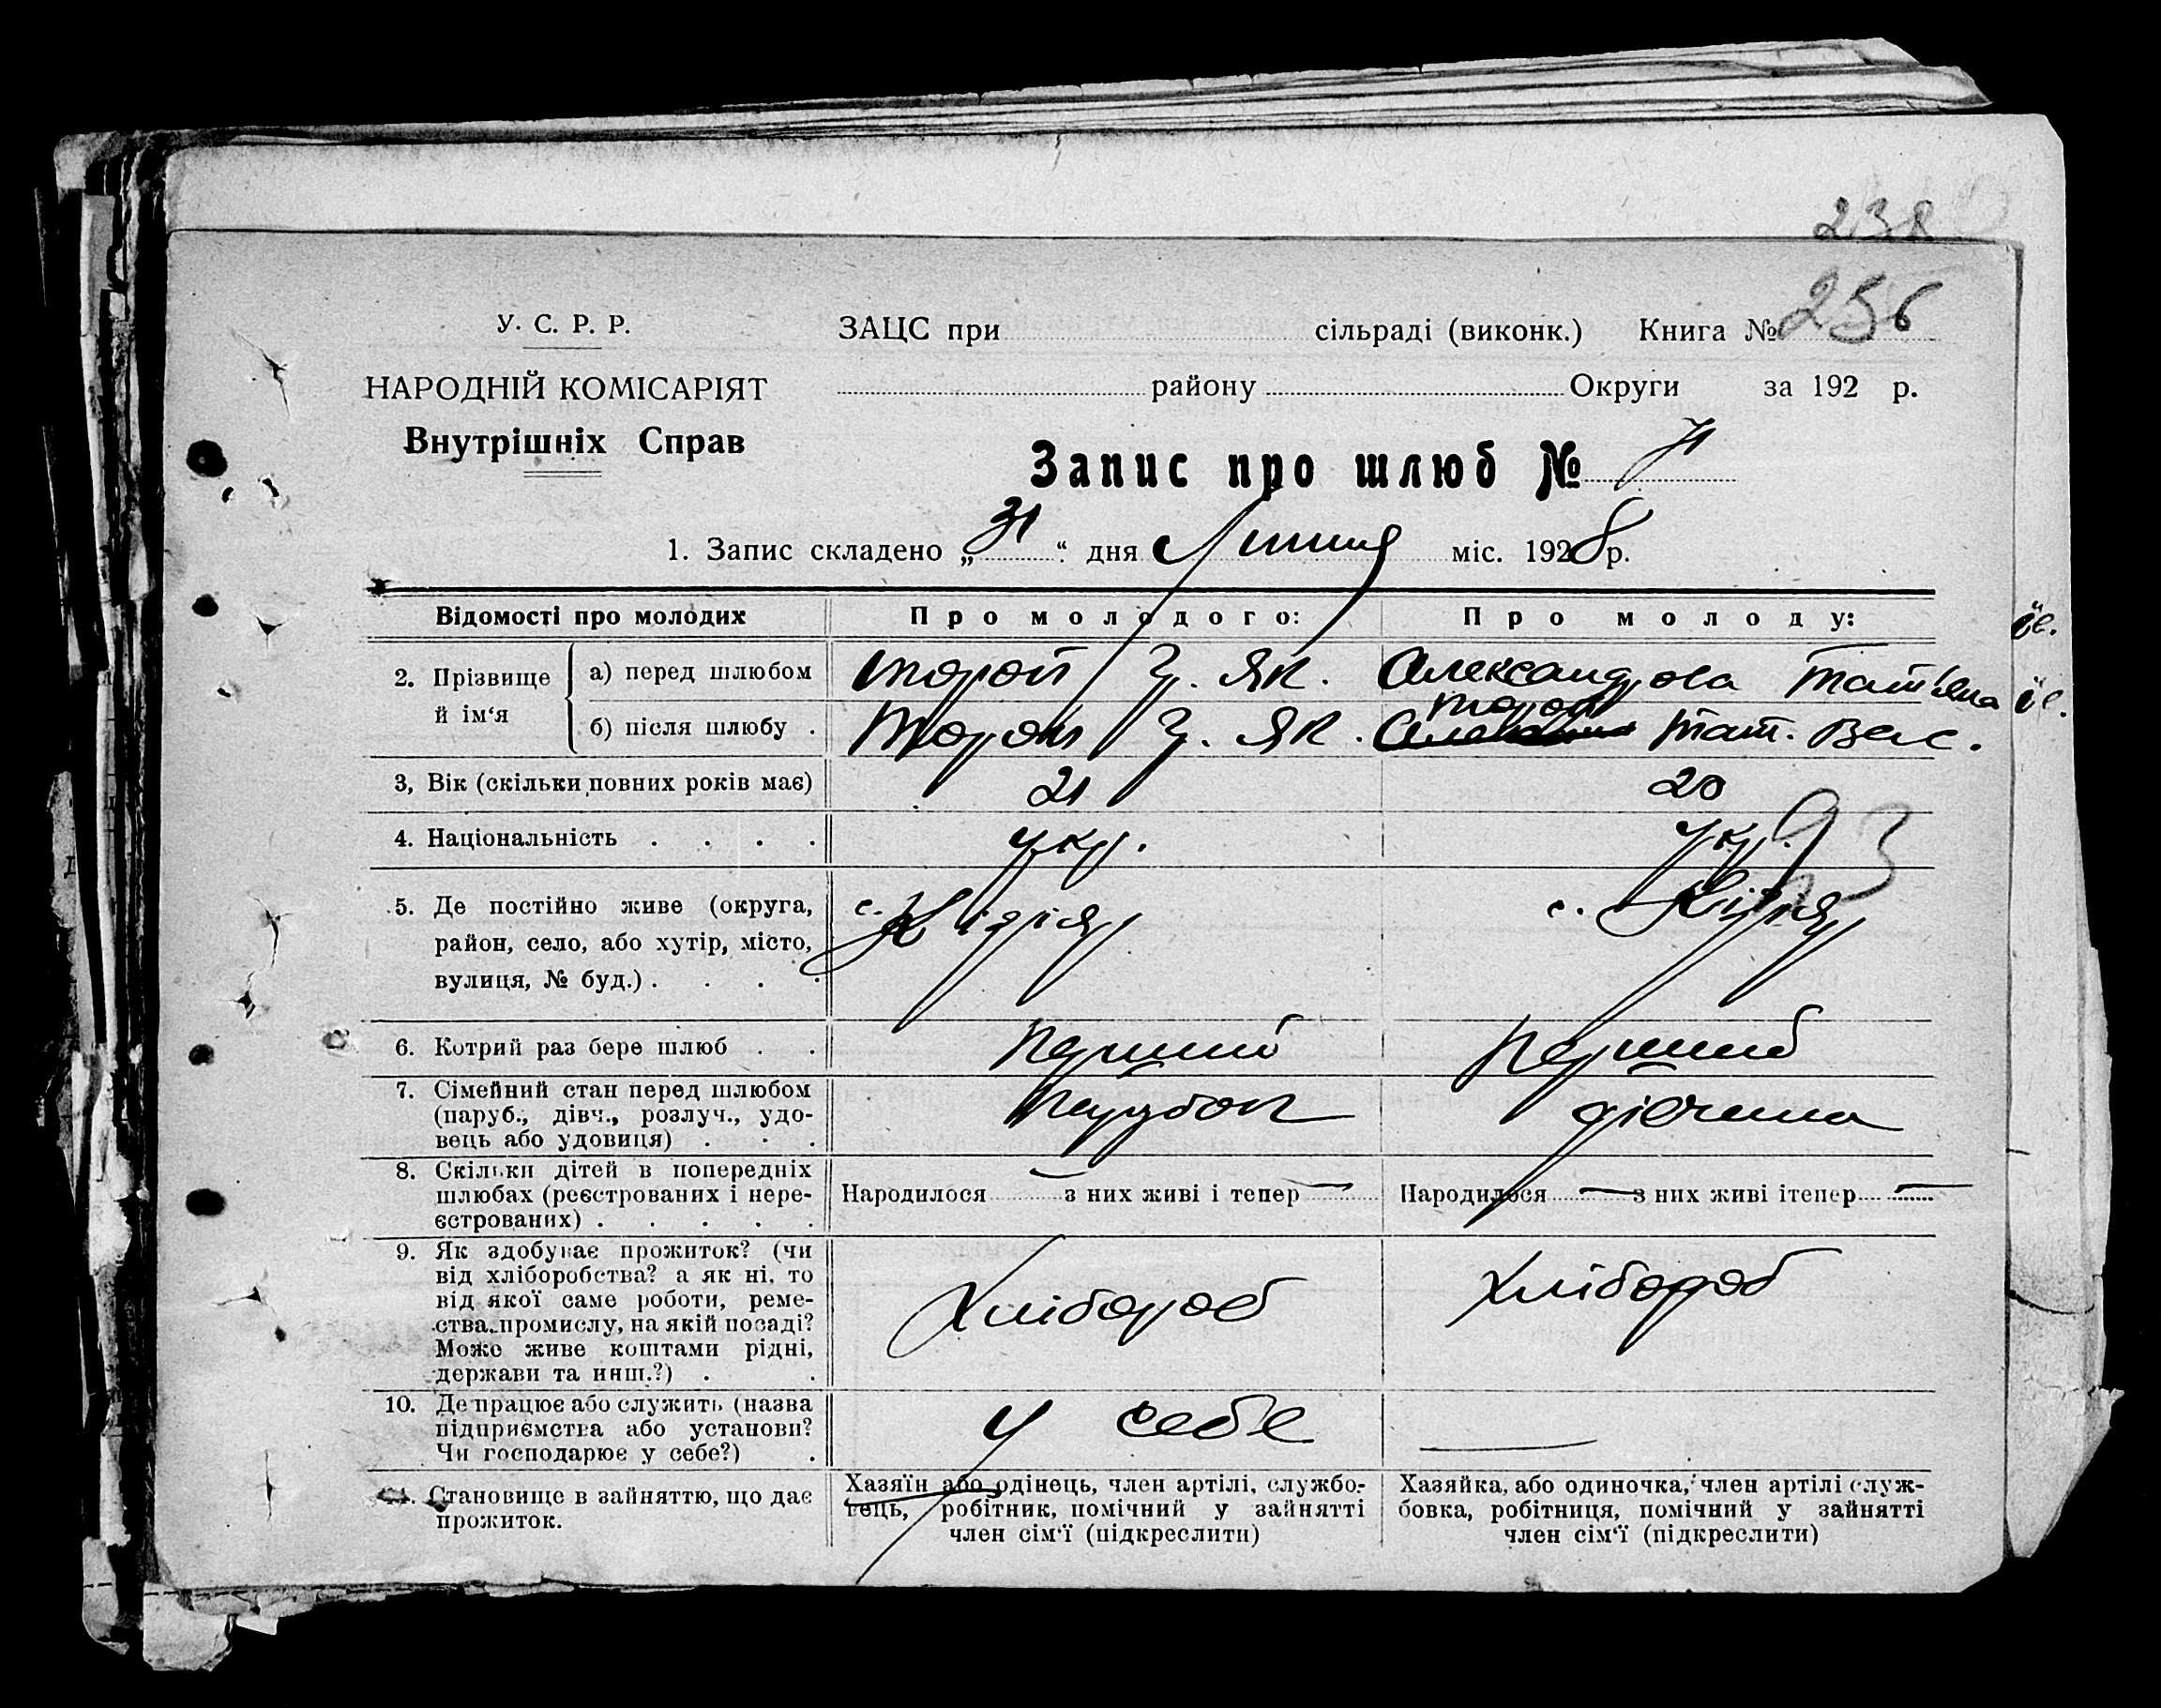 238
256
У. С. Р. Р.
НАРОДНІЙ КОМІСАРІЯТ
Внутрішніх Справ
ЗАЦС при сільраді (виконк.) Книга №
району Округи за 192 р.
Запис про шлюб № 71
1. Запис складено „31“ дня Липня міс. 1928 р.
Відомості про молодих Про молодого: Про молоду:
2. Прізвище й ім‘я
а) перед шлюбом Торон Г. Як. Александрова Татьяна
Торон
б) після шлюбу . Торон Г. Як. Тат. Вас.
3, Вік (скільки повних років має) 21 20
4. Національність . . . . укр. укр.
93
5. Де постійно живе (округа, с. с.
район, село, або хутір, місто,
вулиця, № буд.) . . . .
6. Котрий раз бере шлюб . . перший перший
7. Сімейний стан перед шлюбом
(паруб., дівч., розлуч., удо- парубок дівчина
вець або удовиця) . . .
8. Скільки дітей в попередніх
шлюбах (реєстрованих і нере- Народилося — з них живі і тепер — Народилося — з них живі ітепер —
єстрованих) . . . . .
9. Як здобуває прожиток? (чи
від хліборобства? а як ні, то
від якої саме роботи, реме- Хлібороб Хлібороб
ства, промислу, на якій посаді?
Може живе коштами рідні,
держави та инш.?) . .
10. Де працює або служить (назва
підприємства або установи? у себе —
Чи господарює у себе?) .
11. Становище в зайняттю, що дає
прожиток.
Хазяїн або одінець, член артілі, службо-
вець, робітник, помічний у зайнятті
член сім‘ї (підкреслити)
Хазяйка, або одиночка, член артілі служ-
бовка, робітниця, помічний у зайнятті
член сім‘ї (підкреслити)